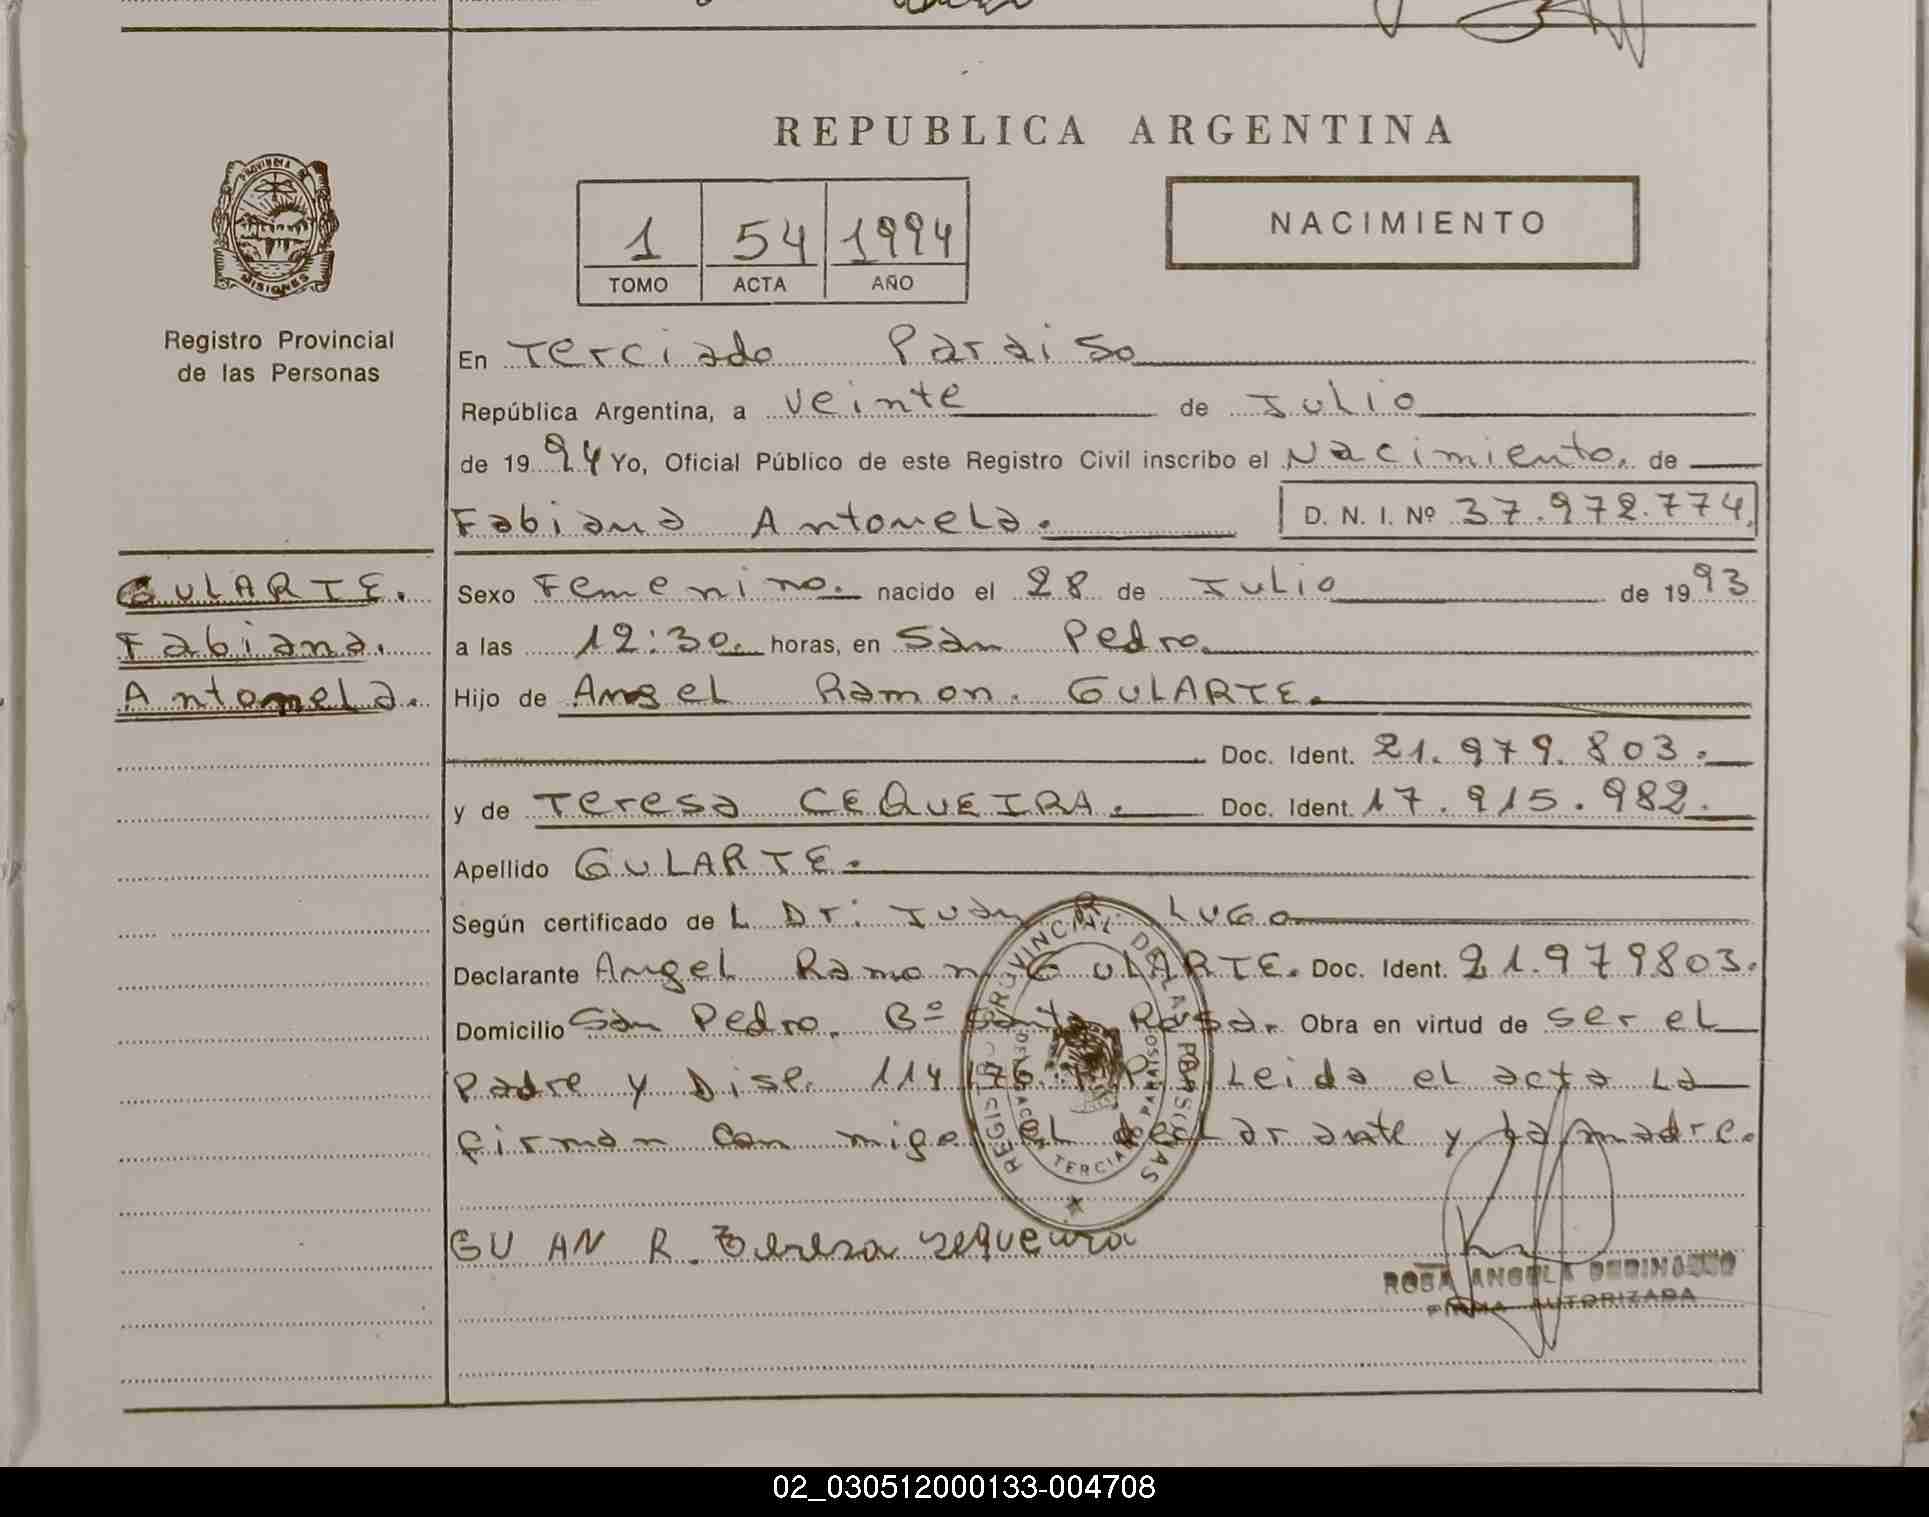 REPUBLICA ARGENTINA
PROVINCIA DE
MISIONES
1 54 1994
TOMO ACTA AÑO
NACIMIENTO
Registro Provincial
de las Personas
En Terciado Paraiso
República Argentina, a veinte de Julio
de 1994 Yo, Oficial Público de este Registro Civil inscribo el Nacimiento. de
Fabiana Antonela. D. N. I. Nº 37.972.774.
GULARTE.
Fabiana.
Antonela.
Sexo Femenino. nacido el 28 de Julio de 1993
a las 12:30. horas, en San Pedro.
Hijo de Angel Ramon. GULARTE.
Doc. Ident. 21.979.803.
y de Teresa CEQUEIRA. Doc. Ident. 17.915.982.
Apellido GULARTE.
Según certificado deL Dr: Juan R. LUGO
Declarante Angel Ramon GULARTE. Doc. Ident. 21.979803.
Domicilio San Pedro. Bº Santa Rosa. Obra en virtud de ser el
Padre y Disp. 114 Leida el acta La
firman con migo el declarante y La madre.
REGISTRO PROVINCIAL DE LAS PERSONAS
TERCIADO PARAISO
GU AN R. Tereza sequeira
ROSA ANGELA
FIRMA AUTORIZADA
02_030512000133-004708